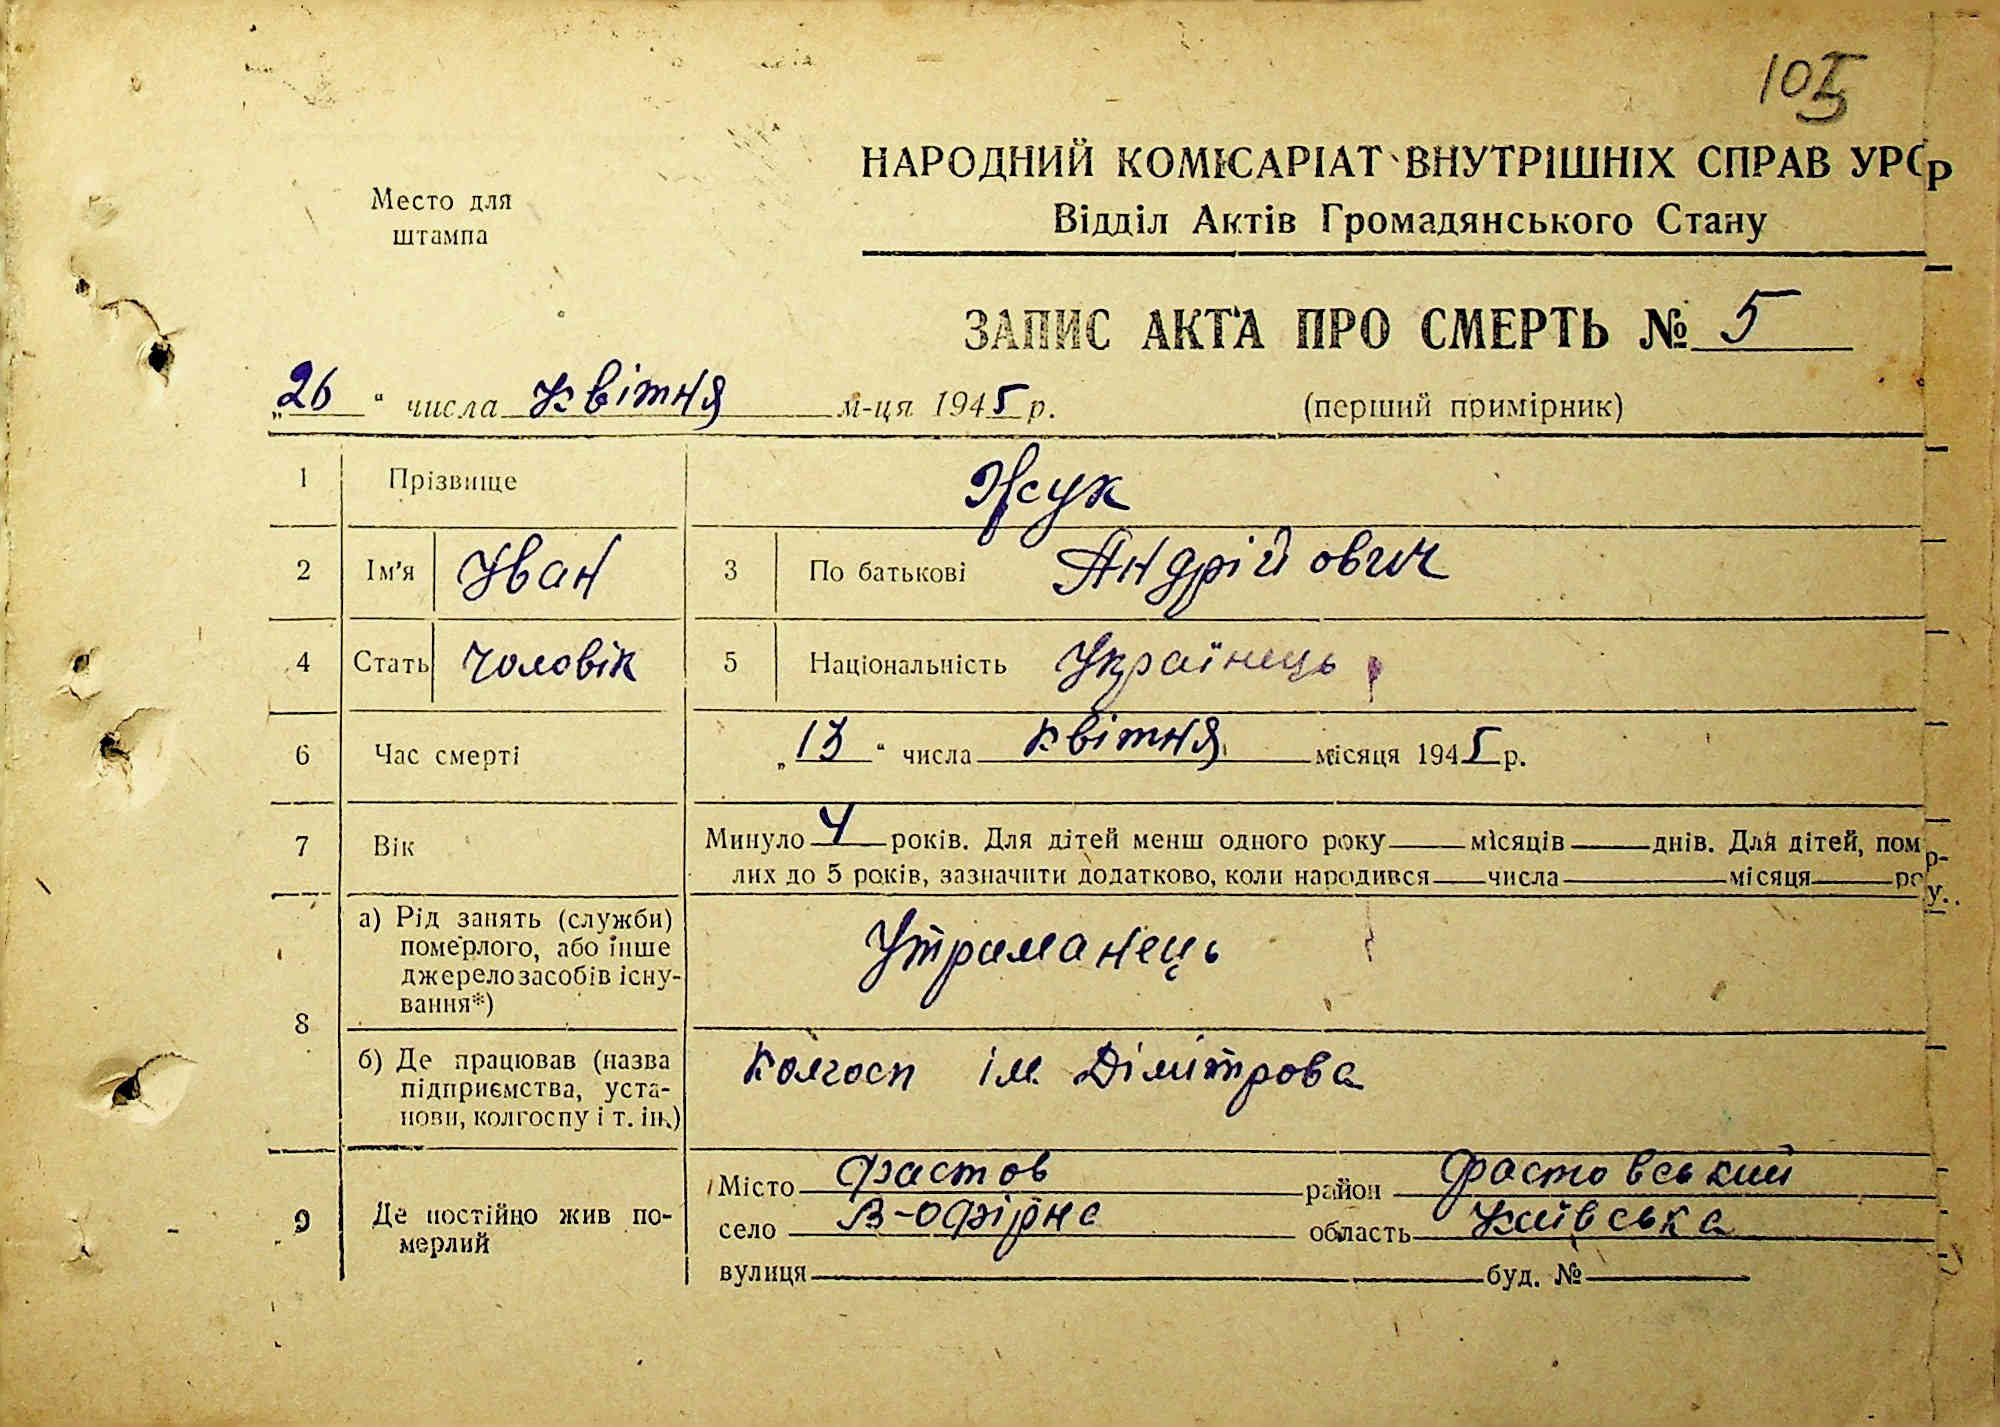 105
НАРОДНИЙ КОМІСАРІАТ ВНУТРІШНІХ СПРАВ УРСР
Место для
штампа
Відділ Актів Громадянського Стану
ЗАПИС АКТА ПРО СМЕРТЬ № 5
„26“ числа квітня м-ця 1945 р. (перший примірник)
1 Прізвище Жук
2 Ім'я Іван 3 По батькові Андрійович
4 Стать чоловік 5 Національність Українець
6 Час смерті „13“ числа квітня місяця 1945 р.
7 Вік Минуло 4 років. Для дітей менш одного року місяців днів. Для дітей, помр-
лих до 5 років, зазначити додатково, коли народився числа місяця року.
8 а) Рід занять (служби)
померлого, або інше
джерело засобів існу-
вання*)
Утриманець
б) Де працював (назва
підприємства, уста-
нови, колгоспу і т. ін.)
Колгосп ім. Дімітрова
9 Де постійно жив по-
мерлий
Місто Фастов район Фастовський
село В-Офірна область Київська
вулиця буд. №